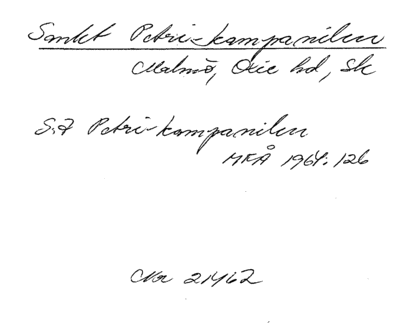 Sankt Petri-kampanilen
Malmö, Oxie hd, Sk
S:t Petri-kampanilen
MFÅ 1964:126
Nr 21462